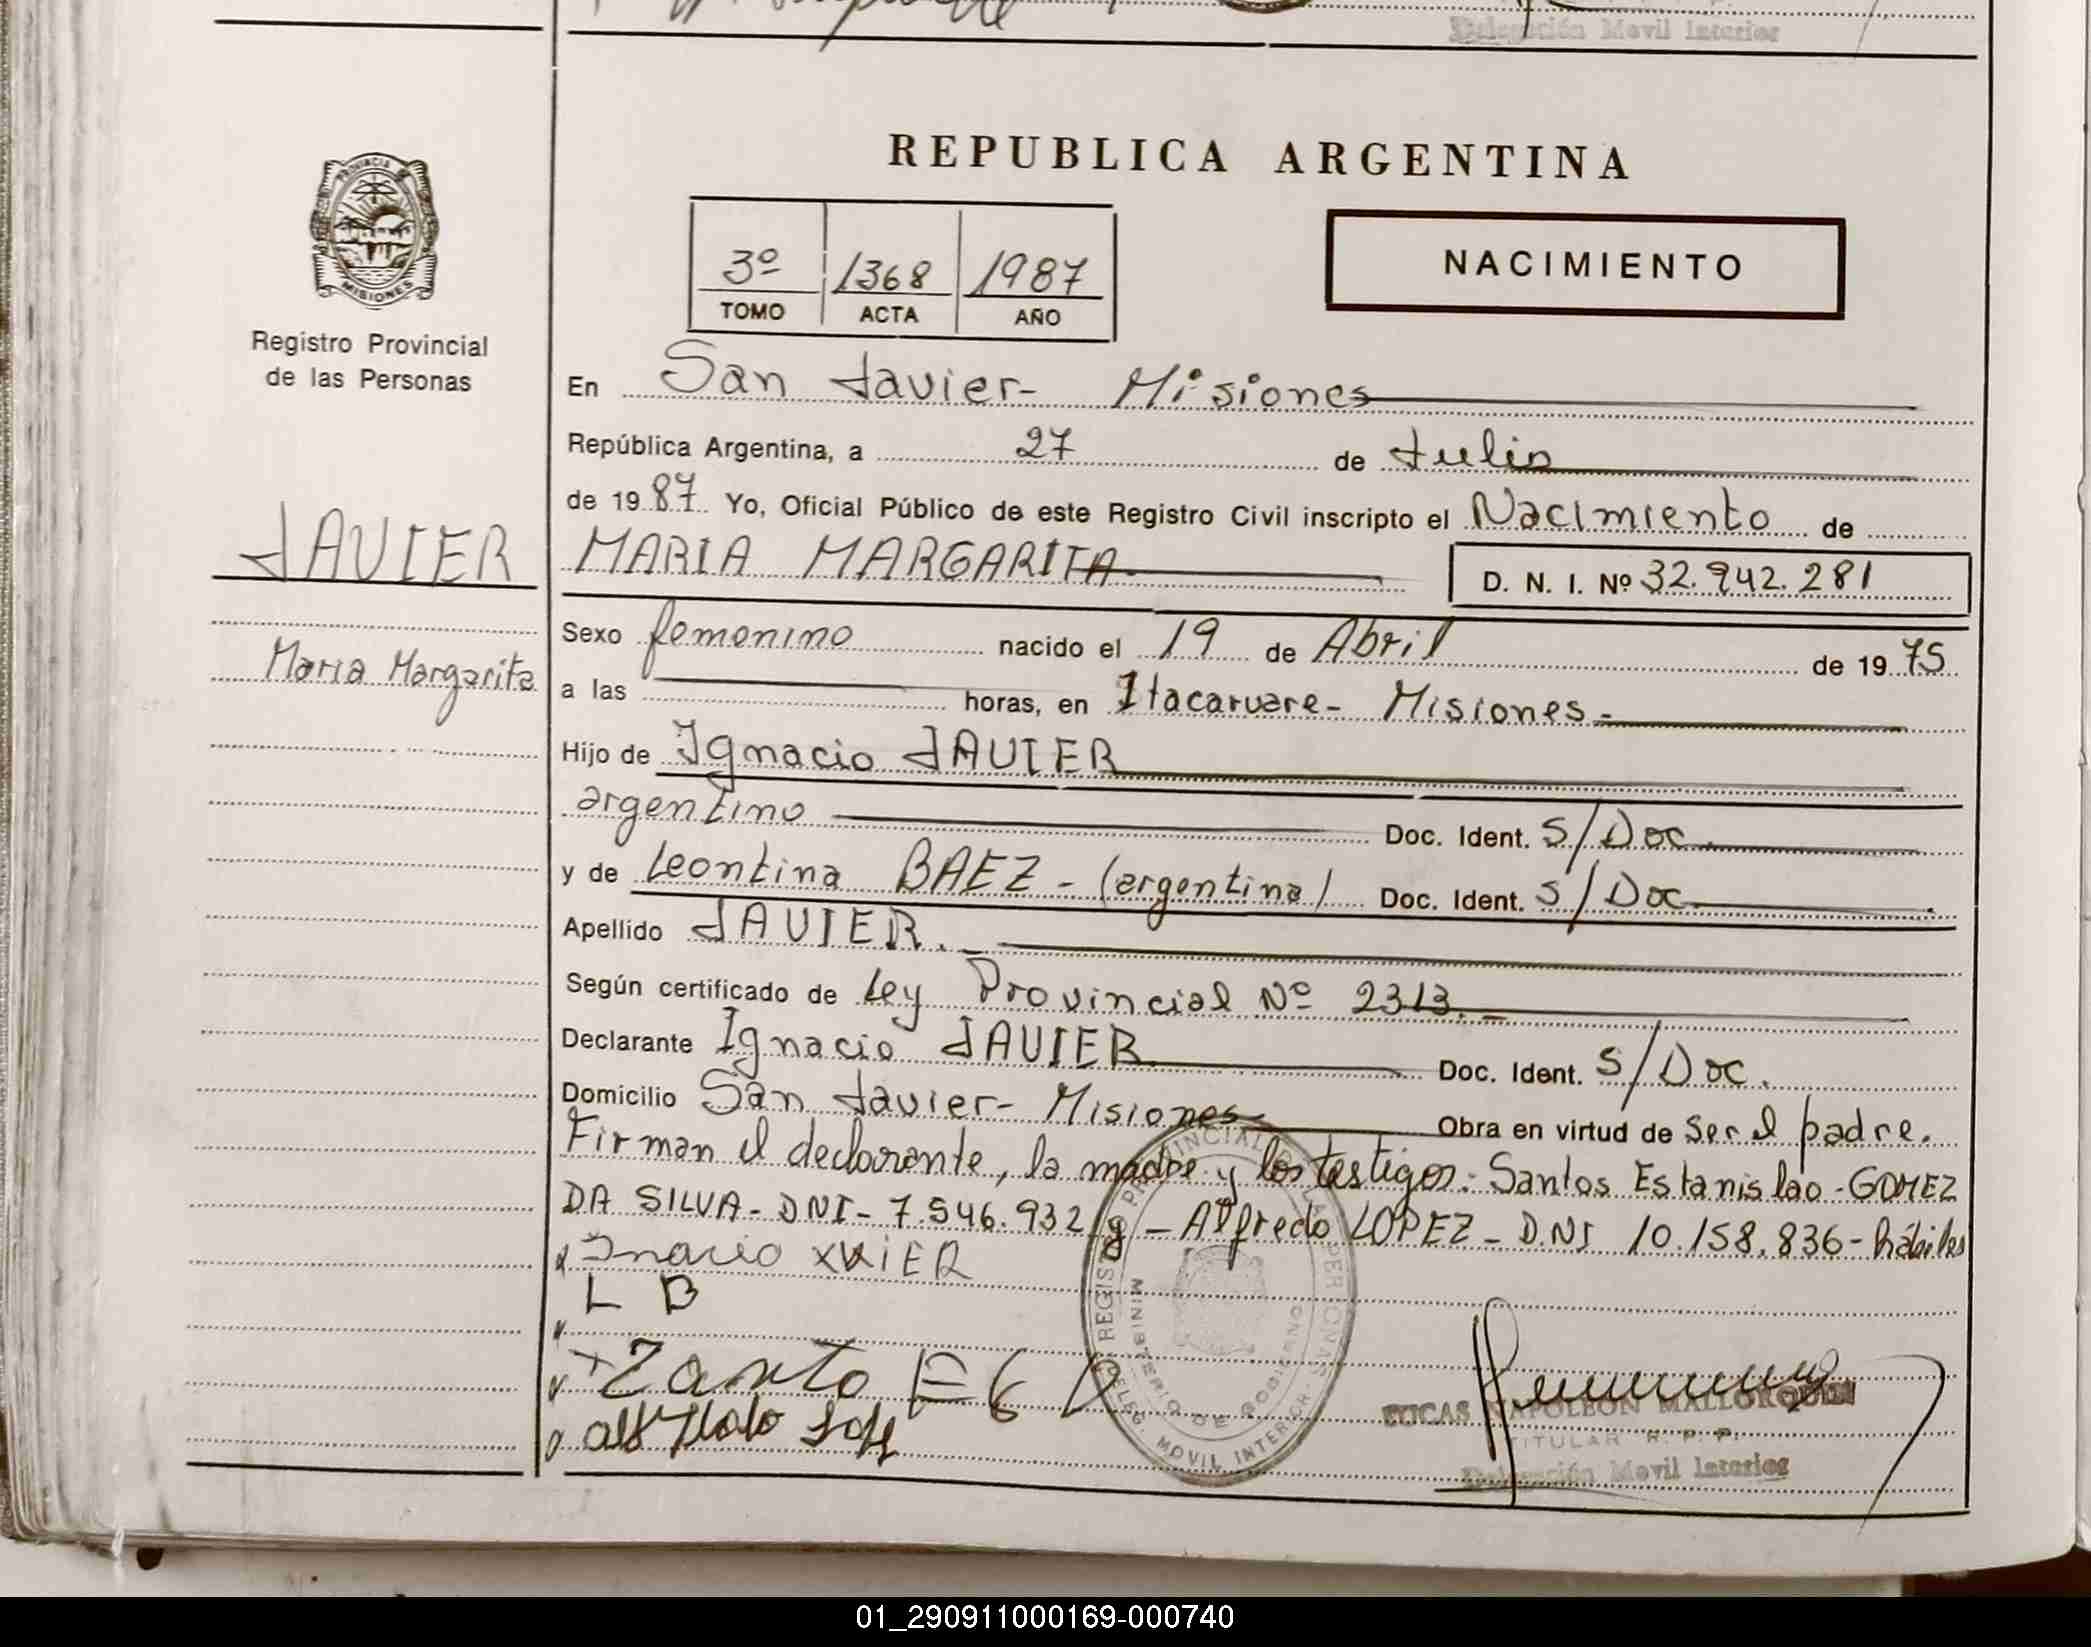 Delegación Movil Interior
REPUBLICA ARGENTINA
PROVINCIA
MISIONES
3º 1368 1987
TOMO ACTA AÑO
NACIMIENTO
Registro Provincial
de las Personas
En San Javier- Misiones
República Argentina, a 27 de Julio
de 1987 Yo, Oficial Público de este Registro Civil inscripto el Nacimiento de
JAVIER
MARIA MARGARITA
D. N. I. Nº 32.942.281
Maria Margarita
Sexo femenino nacido el 19 de Abril de 1975
a las horas, en Itacaruare- Misiones-
Hijo de Ignacio JAVIER
argentino Doc. Ident. S/Doc.
y de Leontina BAEZ - (argentina) Doc. Ident. S/Doc
Apellido JAVIER.-
Según certificado de Ley Provincial Nº 2313.-
Declarante Ignacio JAVIER Doc. Ident. S/Doc.
Domicilio San Javier- Misiones Obra en virtud de ser el padre.
Firman el declarante, la madre y los testigos: Santos Estanislao-GOMEZ
DA SILVA- DNI- 7.546.932 y - Alfredo LOPEZ- D.NI 10.158.836- hábiles
L B
REGISTRO PROVINCIAL DE LAS PERSONAS
MINISTERIO DE GOBIERNO
DELEG. MOVIL INTERIOR
LUCAS NAPOLEON MALLORQUIN
TITULAR R. P. P.
Delegación Movil Interior
01_290911000169-000740